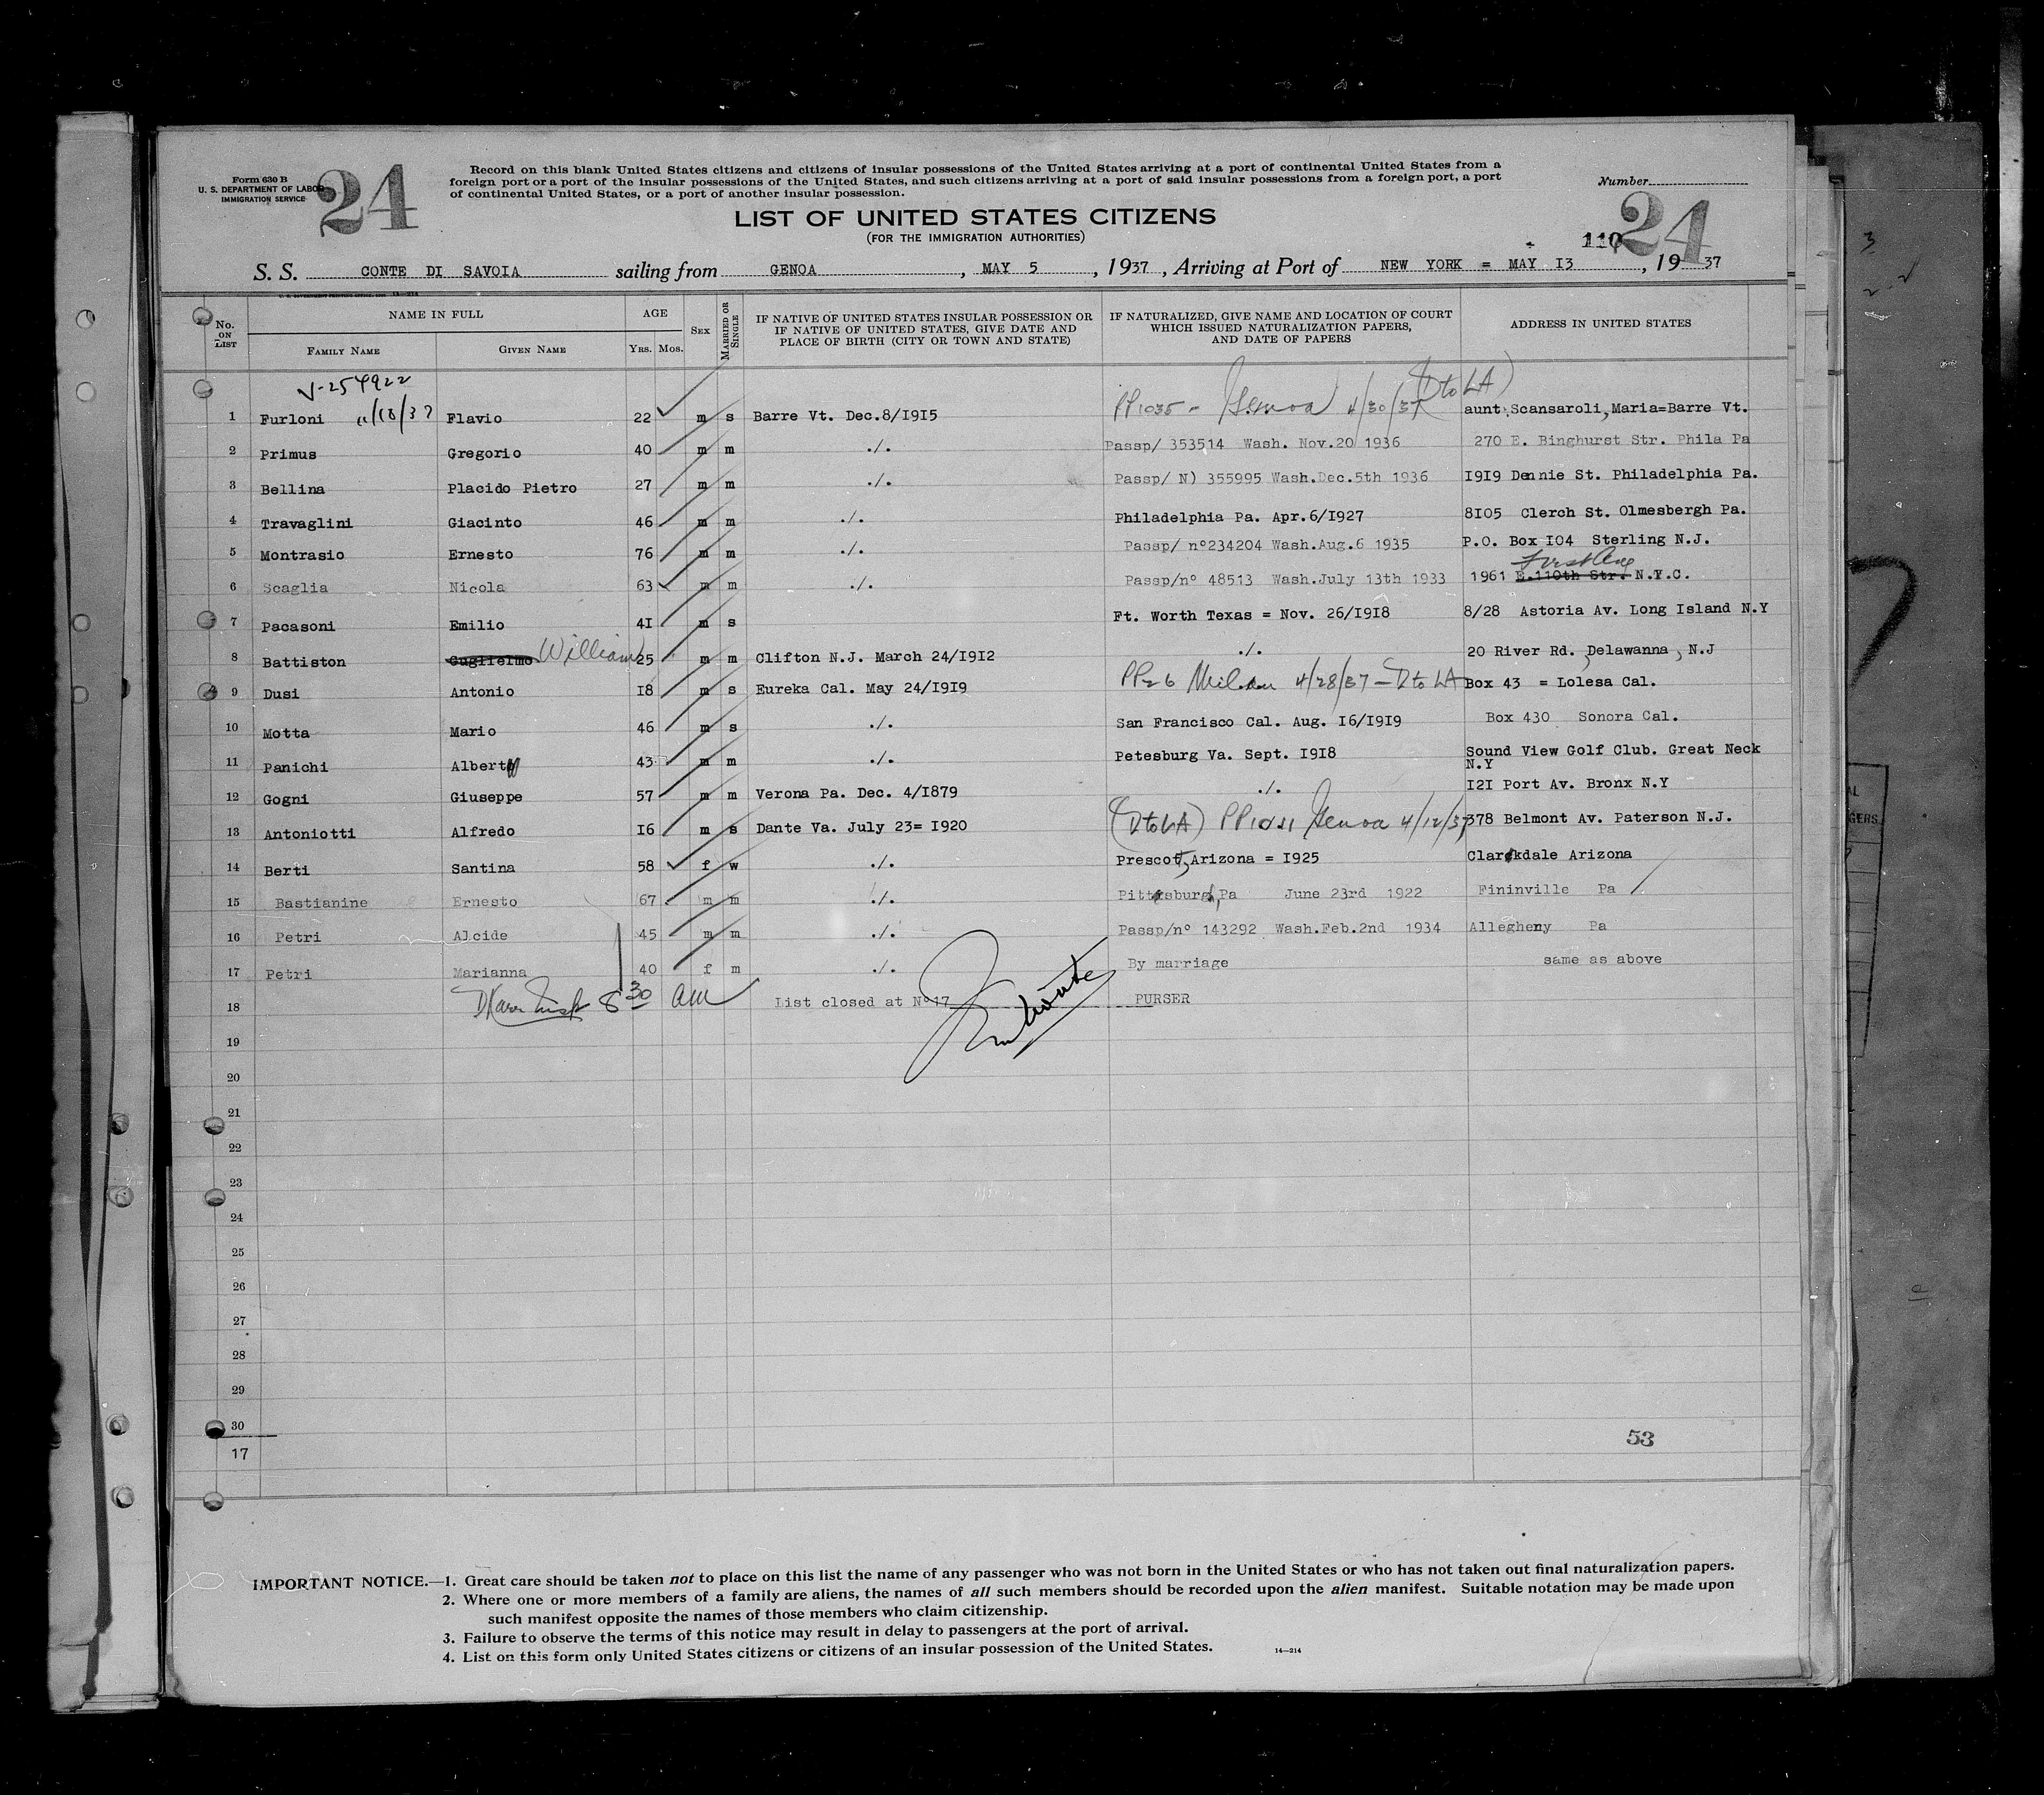 Form 630 B
U. S. DEPARTMENT OF LABOR
IMMIGRATION SERVICE
24
Record on this blank United States citizens and citizens of insular possessions of the United States arriving at a port of continental United States from a
foreign port or a port of the insular possessions of the United States, and such citizens arriving at a port of said insular possessions from a foreign port, a port
of continental United States, or a port of another insular possession.
Number
24
LIST OF UNITED STATES CITIZENS
(FOR THE IMMIGRATION AUTHORITIES)
110
S. S. CONTE DI SAVOIA sailing from GENOA, MAY 5, 1937, Arriving at Port of NEW YORK = MAY I3, 19 37
No. ON LIST NAME IN FULL AGE SEX MARRIED OR SINGLE IF NATIVE OF UNITED STATES INSULAR POSSESSION OR IF NATIVE OF UNITED STATES, GIVE DATE AND PLACE OF BIRTH (CITY OR TOWN AND STATE) IF NATURALIZED, GIVE NAME AND LOCATION OF COURT WHICH ISSUED NATURALIZATION PAPERS, AND DATE OF PAPERS ADDRESS IN UNITED STATES
FAMILY NAME GIVEN NAME YRS. MOS.
V-254922
(D to LA)
1 Furloni 11/18/37 Flavio 22 m s Barre Vt. Dec.8/I9I5 PP1035 - Genoa 4/30/37 aunt Scansaroli, Maria=Barre Vt.
2 Primus Gregorio 40 m m ./. Passp/ 353514 Wash. Nov.20 1936 270 E. Binghurst Str. Phila Pa
3 Bellina Placido Pietro 27 m m ./. Passp/ N) 355995 Wash.Dec.5th 1936 I9I9 Dennie St. Philadelphia Pa.
4 Travaglini Giacinto 46 m m ./. Philadelphia Pa. Apr.6/I927 8I05 Clerch St. Olmesbergh Pa.
5 Montrasio Ernesto 76 m m ./. Passp/ nº234204 Wash.Aug.6 1935 P.O. Box I04 Sterling N.J.
First Ave
6 Scaglia Nicola 63 m m ./. Passp/nº 48513 Wash.July 13th 1933 1961 E.110th Str. N.Y.C.
7 Pacasoni Emilio 4I m s Ft. Worth Texas = Nov. 26/I9I8 8/28 Astoria Av. Long Island N.Y
8 Battiston Guglielmo William 25 m m Clifton N.J. March 24/I9I2 ./. 20 River Rd. Delawanna, N.J
9 Dusi Antonio I8 m s Eureka Cal. May 24/I9I9 PP26 Milan 4/28/37 - D to LA Box 43 = Lolesa Cal.
10 Motta Mario 46 m s ./. San Francisco Cal. Aug. I6/I9I9 Box 430 Sonora Cal.
11 Panichi Alberto 43 m m ./. Petesburg Va. Sept. I9I8 Sound View Golf Club. Great Neck
N.Y
12 Gogni Giuseppe 57 m m Verona Pa. Dec. 4/I879 ./. I2I Port Av. Bronx N.Y
13 Antoniotti Alfredo I6 m s Dante Va. July 23= I920 (D to LA) Genoa 4/12/37 378 Belmont Av. Paterson N.J.
14 Berti Santina 58 f w ./. Prescot, Arizona = I925 Clarkdale Arizona
15 Bastianine Ernesto 67 m m ./. Pittsburgh, Pa June 23rd 1922 Fininville Pa
16 Petri Alcide 45 m m ./. Passp/nº 143292 Wash.Feb.2nd 1934 Allegheny Pa
17 Petri Marianna 40 f m ./. By marriage same as above
18 8 30 am List closed at Nº17 PURSER
19
20
21
22
23
24
25
26
27
28
29
30
17
53
IMPORTANT NOTICE.—1. Great care should be taken not to place on this list the name of any passenger who was not born in the United States or who has not taken out final naturalization papers.
2. Where one or more members of a family are aliens, the names of all such members should be recorded upon the alien manifest. Suitable notation may be made upon
such manifest opposite the names of those members who claim citizenship.
3. Failure to observe the terms of this notice may result in delay to passengers at the port of arrival.
4. List on this form only United States citizens or citizens of an insular possession of the United States.
14—214